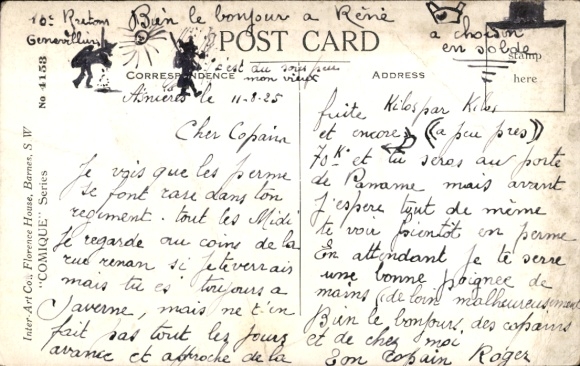 Bien le bonjour a Réné
10 Bretons
Genevilliers
a choison
en solde
POST CARD
c'est au sous peu
mon vieux
CORRESPONDENCE
ADDRESS
stamp
here
Inter-Art Co., Florence House, Barnes, S W
"COMIQUE" Series
No 4158
Asnières le 11-8-25
Cher Copain
Je vois que les perme
se font rare dans ton
regiment. tout les Midi
Je regarde au coins de la
rue renan si Je te verrais
mais tu es toujours a
Saverne, mais ne t'en
fait pas tout les Jours
avance et approche de la
fuite Kilos par Kilos
et encore (a peu pres)
70K et tu seras au porte
de Paname mais avant
J'espere tout de même
te voir bientot en perme
En attendant Je te serre
une bonne poignee de
mains (de loin malheureusement
Bien le bonjours des copains
et de chez moi
Ton copain Roger